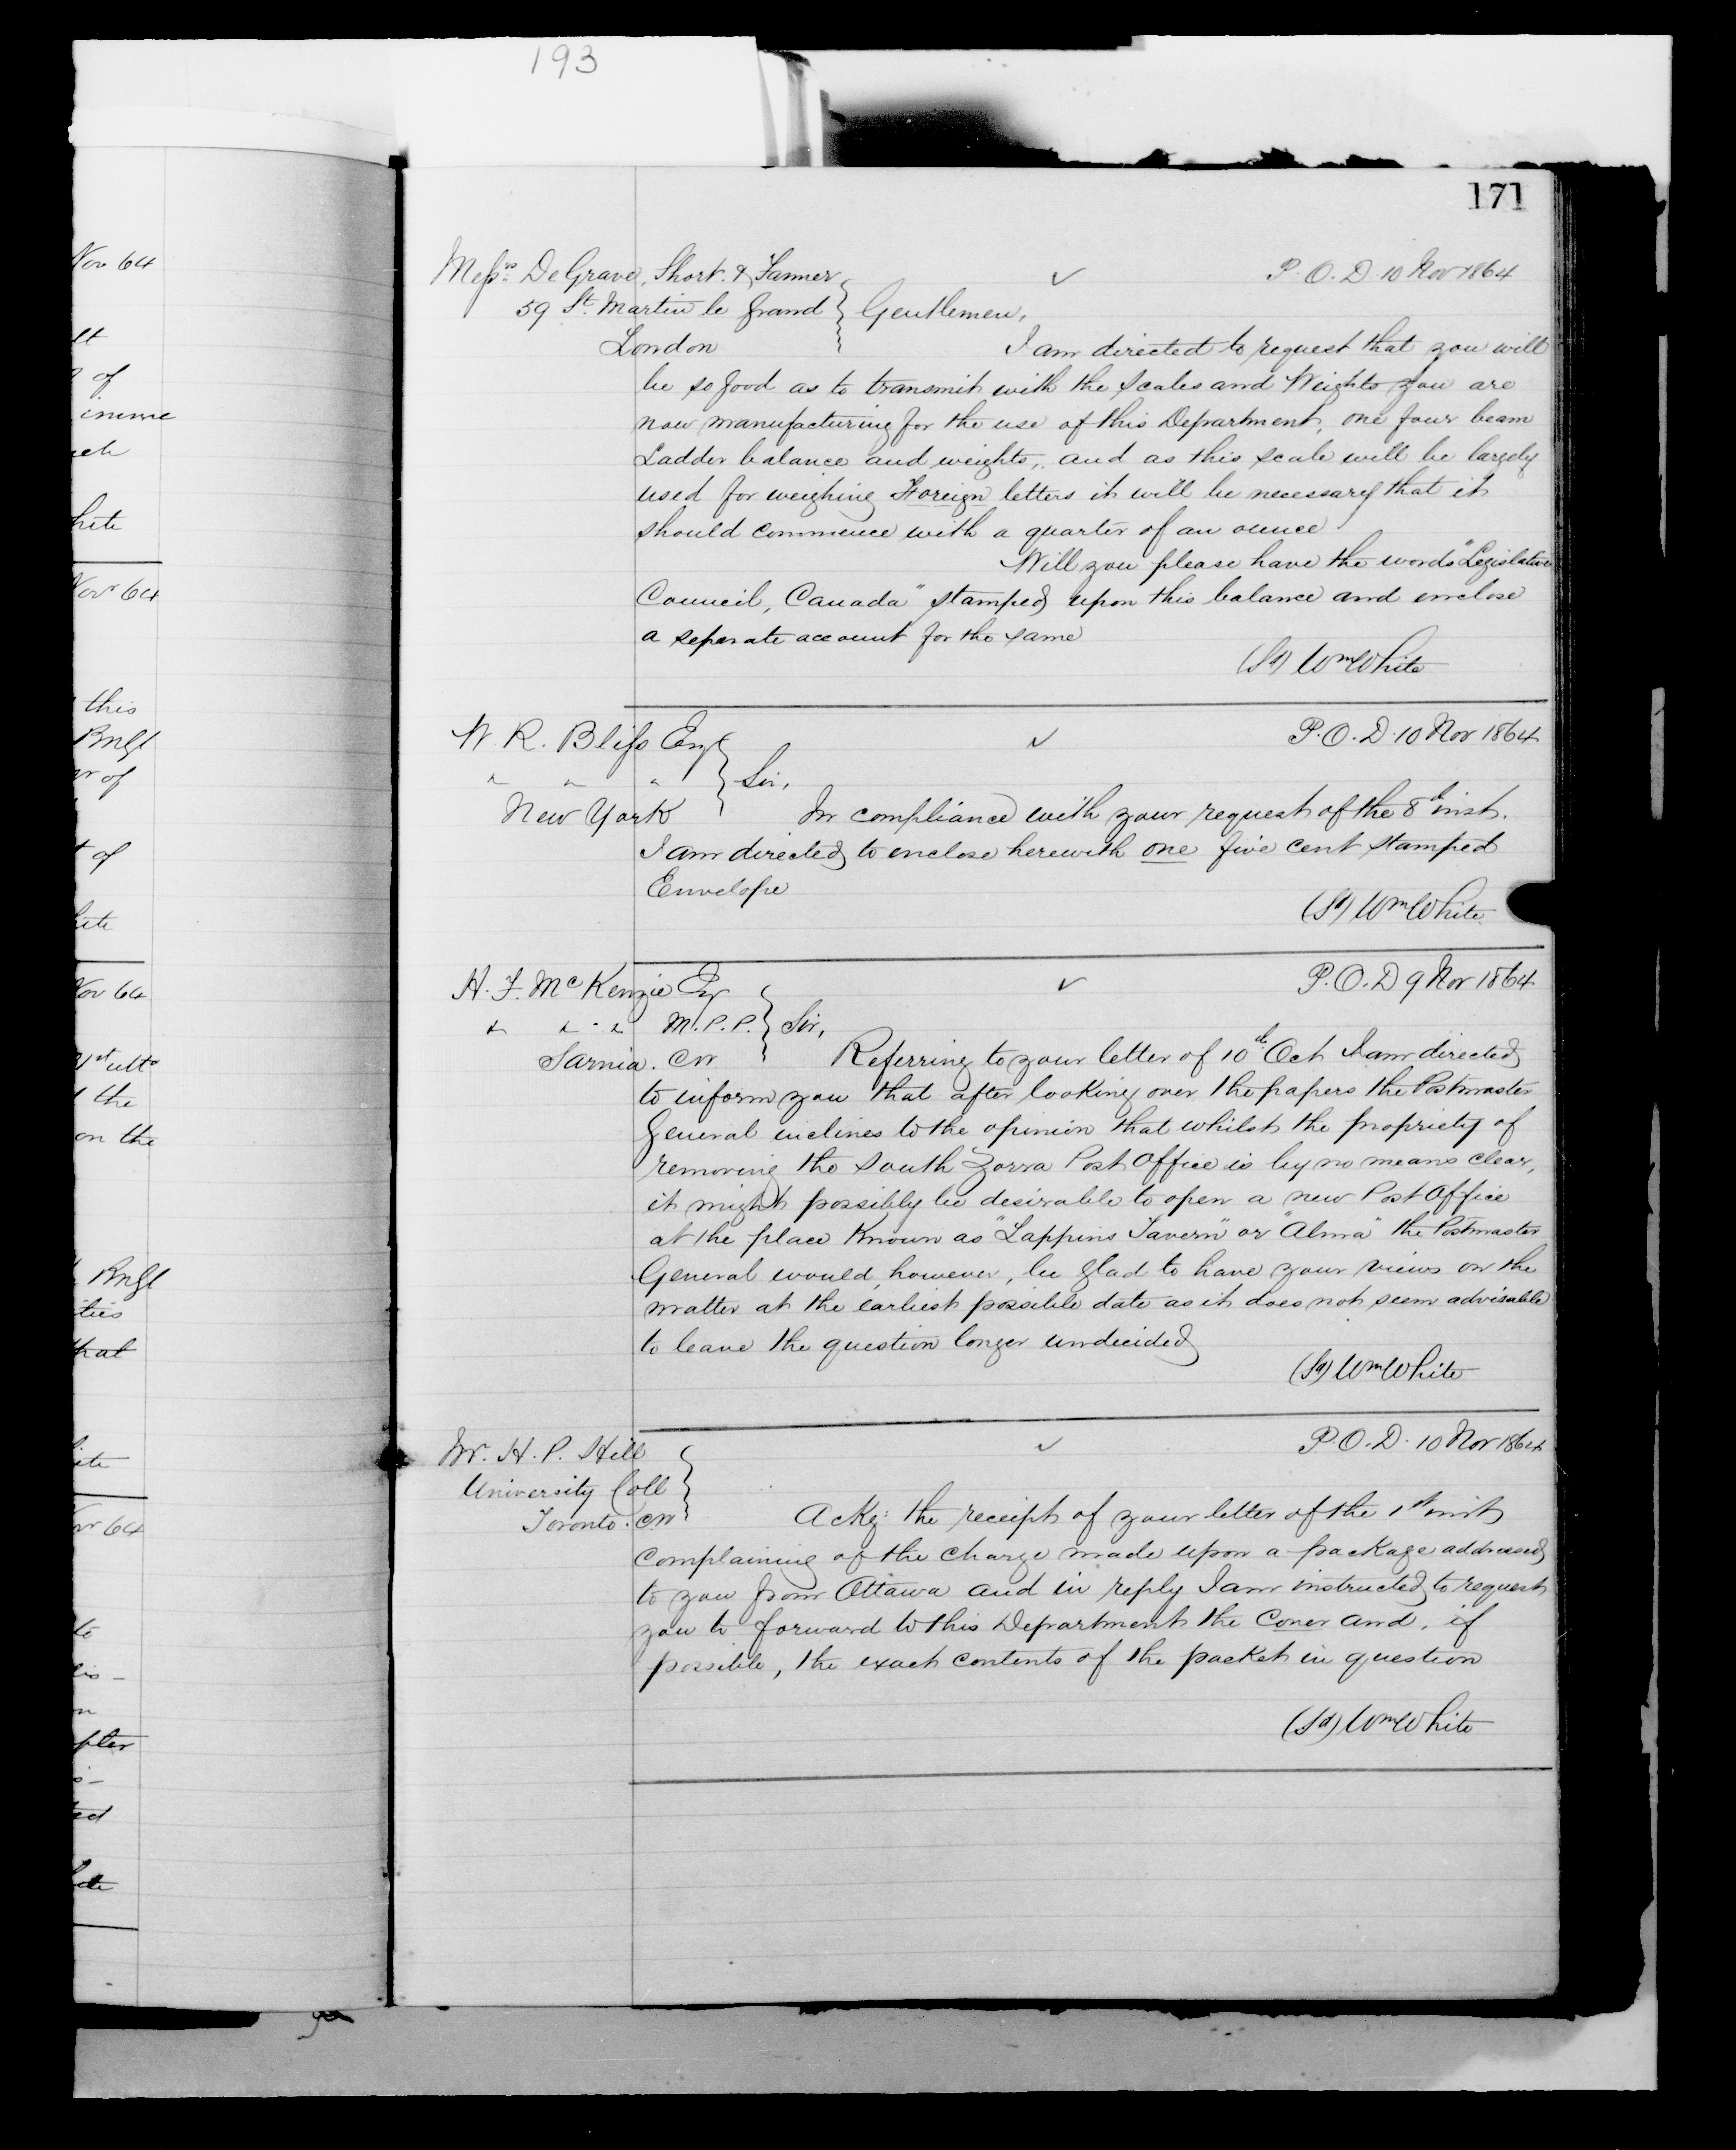 193
171
Messrs. De Grave, Short. & Fanner
P.O.D. 10 Nov 1864
59 St. Martin le Grand
Gentlemen,
London
I am directed to request that you will
be so good as to transmit with the Scales and Weights you are
now manufacturing for the use of this Department, one four beam
Ladder balance and weights, and as this scale will be largely
used for weighing Foreign letters it will be necessary that it
should commence with a quarter of an ounce
Will you please have the words "Legislative
Council, Canada" stamped upon this balance and enclose
a separate account for the same
(Sd) Wm White
W. R. Bliss Esq
P.O.D. 10 Nov 1864
" " "
Sir,
New York
In compliance with your request of the 8th inst.
I am directed to enclose herewith one five cent stamped
Envelope
(Sd) Wm White
H. F. McKenzie Esq
P.O.D 9 Nov 1864
" " " M.P.P.
Sir,
Sarnia. CW
Referring to your letter of 10th Oct I am directed
to inform you that after looking over the papers the Postmaster
General inclines to the opinion that whilst the propriety of
removing the South Zorra Post Office is by no means clear,
it might possibly be desirable to open a new Post Office
at the place Known as "Lappins Tavern" or "Alma" the Postmaster
General would, however, be glad to have your views on the
matter at the earliest possible date as it does not seem advisable
to leave the question longer undecided
(Sd) Wm White
Mr. H. P. Hill
P.O.D. 10 Nov 1864
University Coll
Toronto. CW
Ackg: the receipt of your letter of the 1st inst
complaining of the charge made upon a package addressed
to you from Ottawa and in reply I am instructed to request
you to forward to this Department the Cover and, if
possible, the exact contents of the packet in question
(Sd) Wm White
Nov 64
of
hite
Nov 64
this
of
Nov 64
ulto
the
on the
that
64